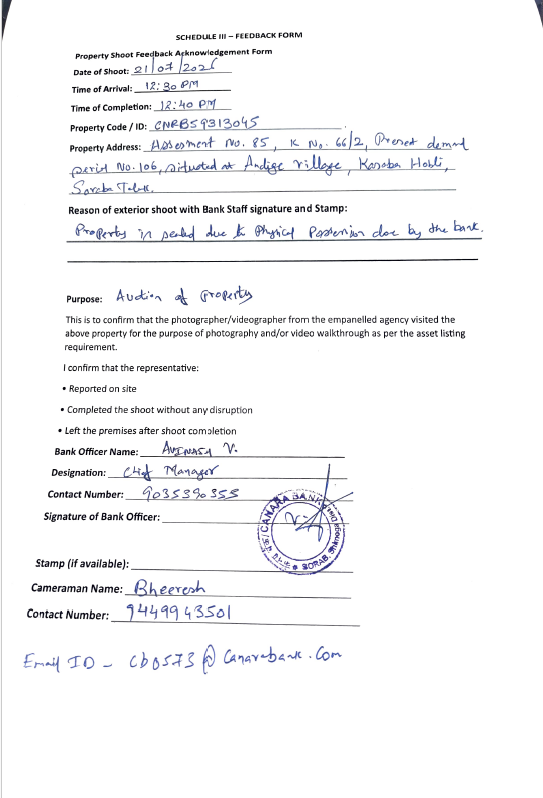 SCHEDULE III – FEEDBACK FORM
Property Shoot Feedback Acknowledgement Form
Date of Shoot: 21/07/2025
Time of Arrival: 12:30 PM
Time of Completion: 12:40 PM
Property Code / ID: CNRB59313045
Property Address: Assesment No. 85, K No. 66/2, Present demand
period No. 106, situated at Andige village, Kasaba Hobli,
Soraba Taluk.
Reason of exterior shoot with Bank Staff signature and Stamp:
Property is sealed due to Physical Possession done by the bank.
Purpose: Auction of Property
This is to confirm that the photographer/videographer from the empanelled agency visited the
above property for the purpose of photography and/or video walkthrough as per the asset listing
requirement.
I confirm that the representative:
• Reported on site
• Completed the shoot without any disruption
• Left the premises after shoot completion
Bank Officer Name: AVINASH V.
Designation: Chief Manager
Contact Number: 9035390355
Signature of Bank Officer:
CANARA BANK
SORAB
Stamp (if available):
Cameraman Name: Bheeresh
Contact Number: 9449943501
Email ID - cb0573@canarabank.com